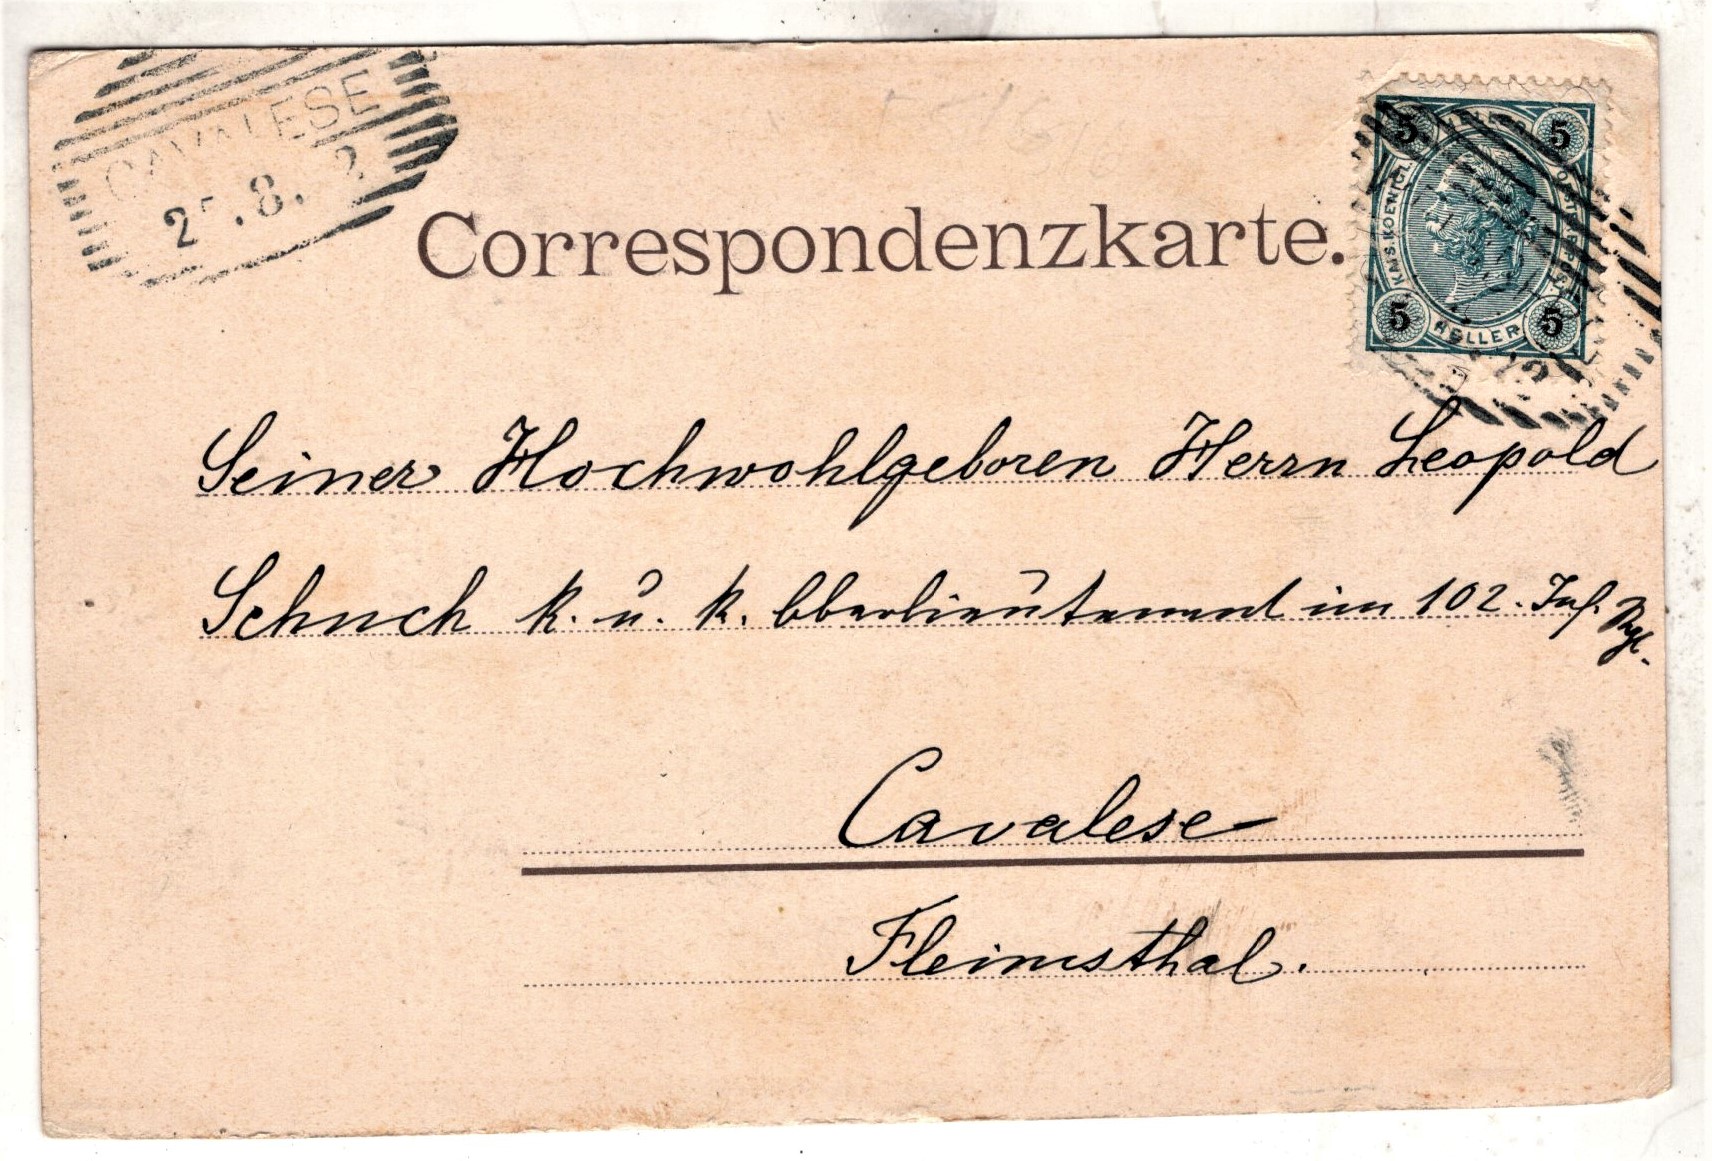 CAVALESE
2 .8. 2
Correspondenzkarte.
5 HELLER 5
KAIS. KOENIGL. OESTERR. POST
5 HELLER 5
Seiner Hochwohlgeboren Herrn Leopold
Schuch k. u. k. Oberlieutenant im 102. Inf. Rgt.
Cavalese
Fleimsthal.